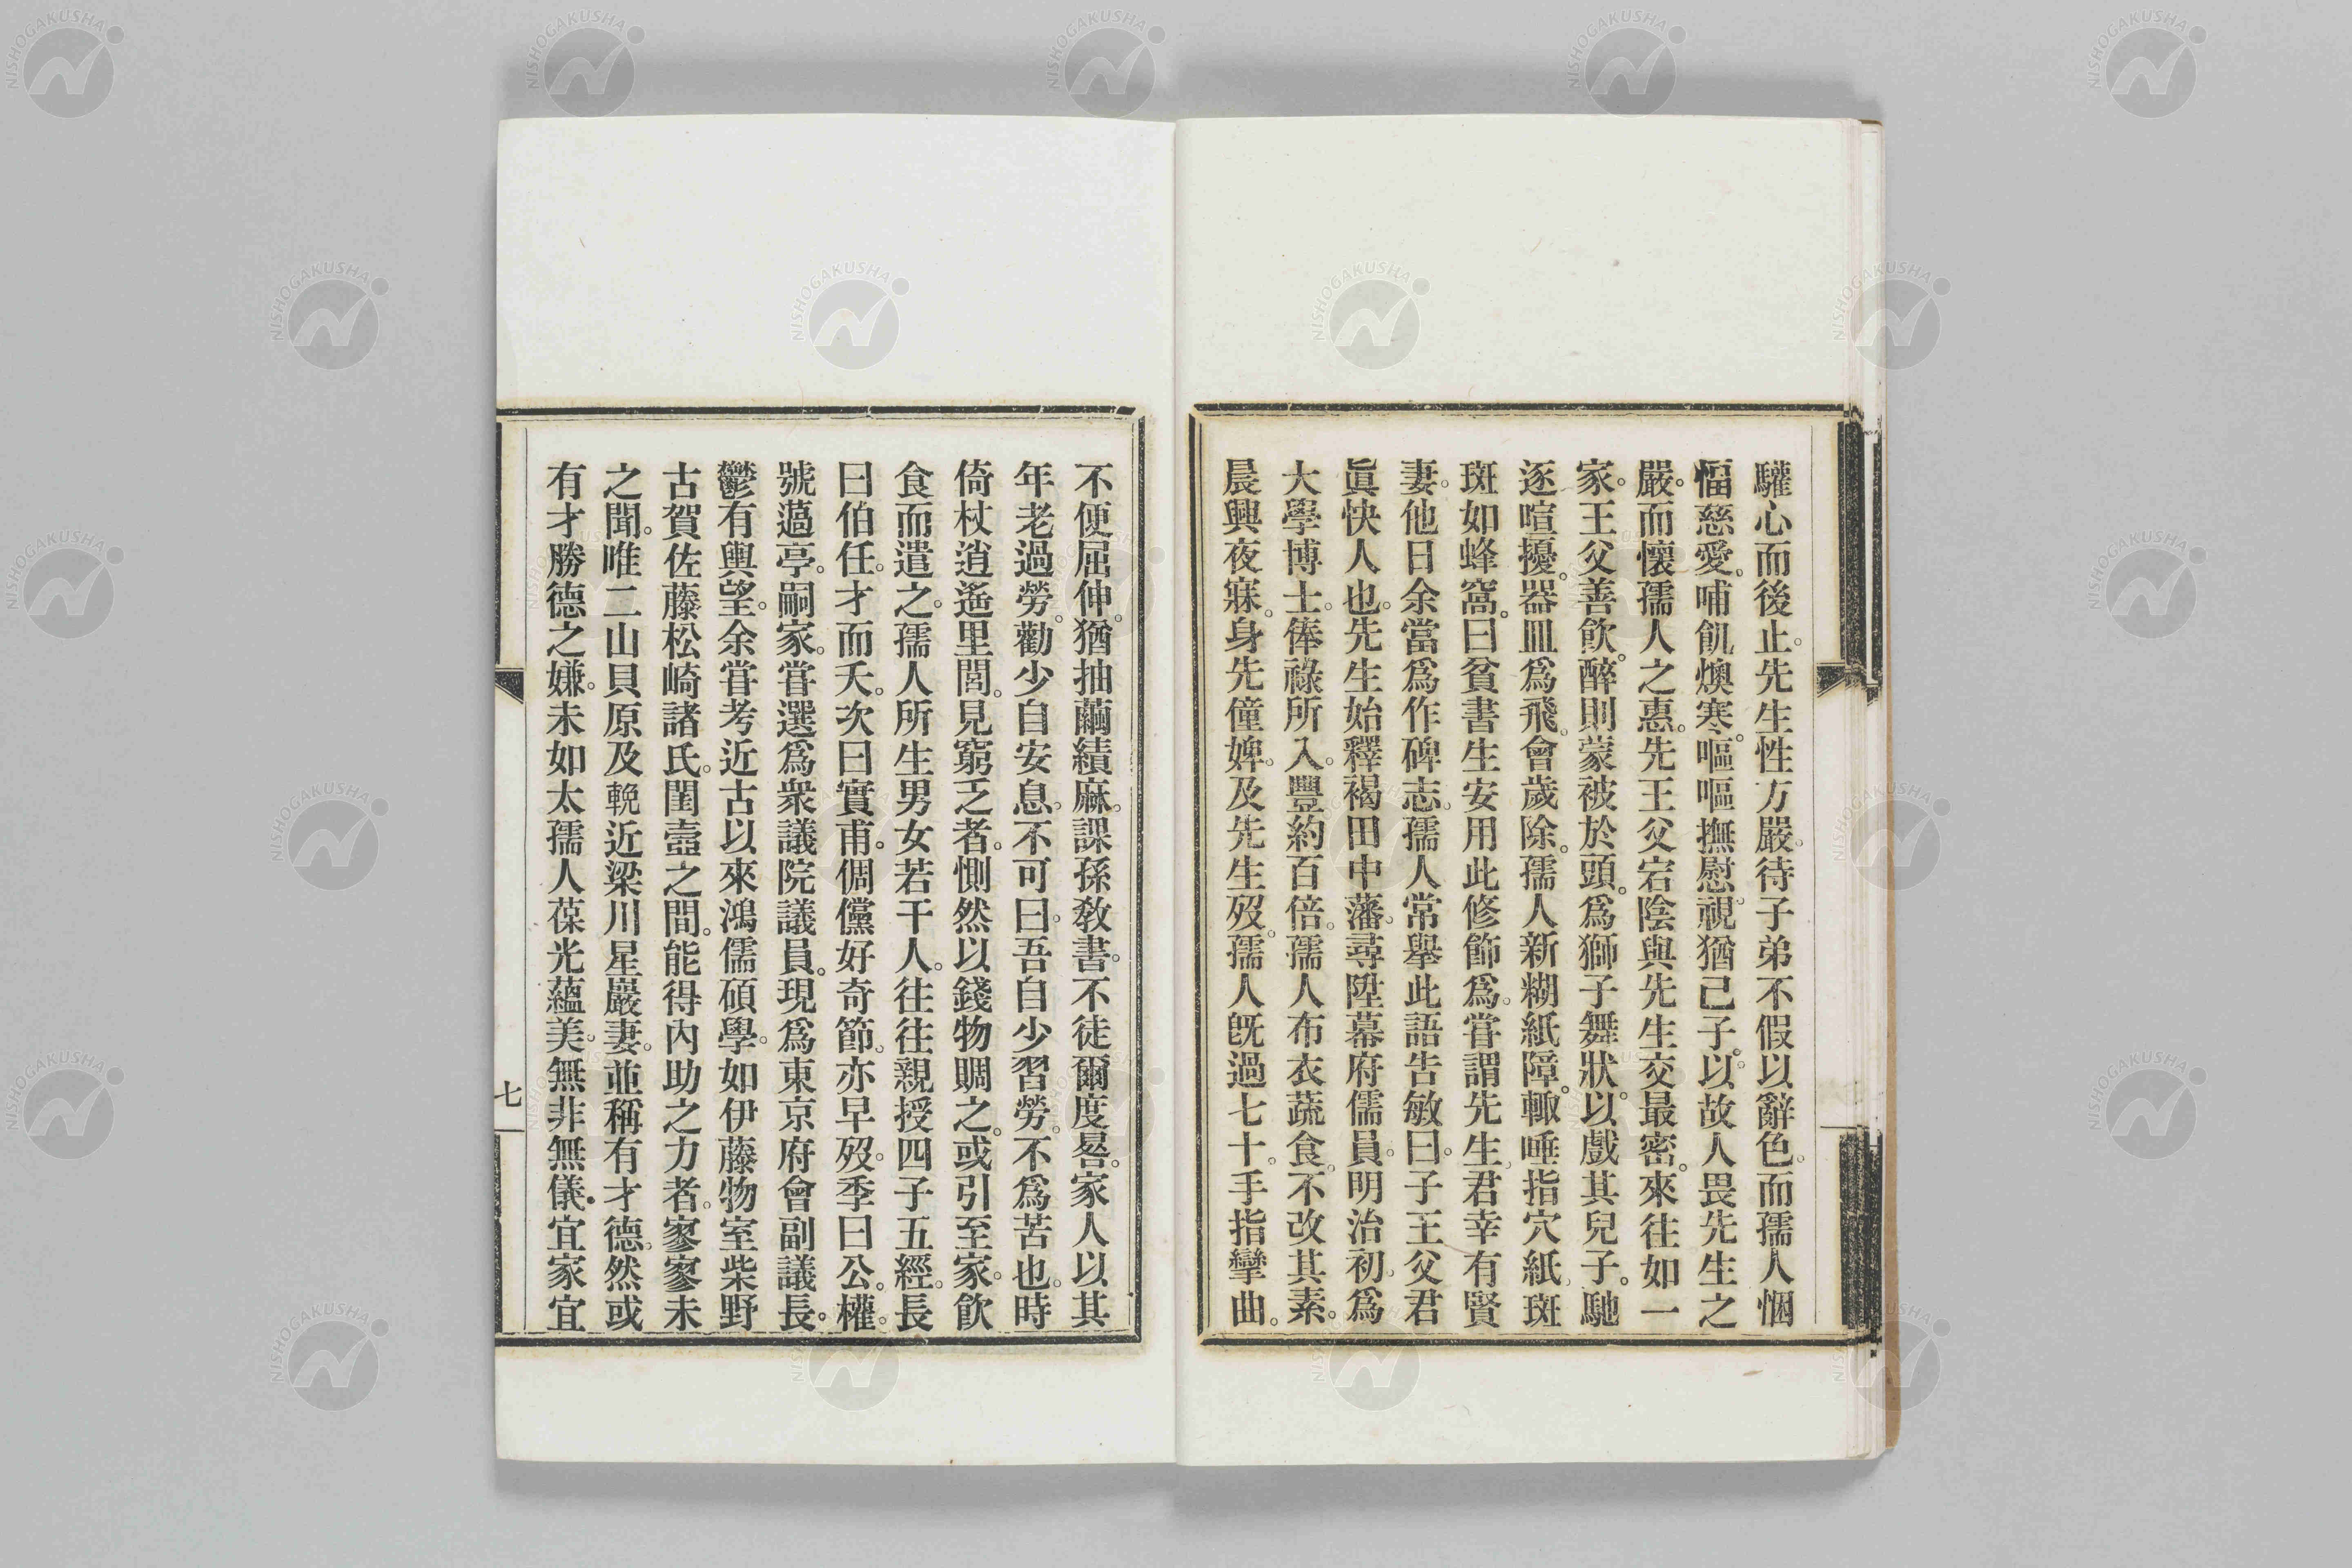 驩心而後止。先生性方嚴。待子弟不假以辭色。而孺人悃
愊慈愛。哺飢燠寒。嘔嘔撫慰。視猶己子。以故人畏先生之
嚴。而懷孺人之惠。先王父宕陰與先生交最密。來往如一
家。王父善飮。醉則蒙被於頭。爲獅子舞狀。以戲其兒子。馳
逐喧擾。器皿爲飛。會歲除。孺人新糊紙障。輙唾指穴紙。斑
斑如蜂窩。曰貧書生安用此修飾爲。嘗謂先生。君幸有賢
妻。他日余當爲作碑志。孺人常擧此語告敏曰。子王父君
眞快人也。先生始釋褐田中藩。尋陞幕府儒員。明治初。爲
大學博士。俸祿所入。豐約百倍。孺人布衣蔬食。不改其素。
晨興夜寐。身先僮婢。及先生歿。孺人旣過七十。手指攣曲。
不便屈伸。猶抽繭績麻。課孫敎書。不徒爾度晷。家人以其
年老過勞。勸少自安息。不可曰。吾自少習勞。不爲苦也。時
倚杖逍遙里閭。見窮乏者。惻然以錢物賙之。或引至家。飮
食而遣之。孺人所生男女若干人。往往親授四子五經。長
曰伯任。才而夭。次曰實甫。倜儻好奇節。亦早歿。季曰公。權。
號薖亭。嗣家。嘗選爲衆議院議員。現爲東京府會副議長。
鬱有輿望。余嘗考近古以來鴻儒碩學。如伊藤物室柴野
古賀佐藤松崎諸氏。閨壼之間。能得內助之力者。寥寥未
之聞。唯二山貝原及輓近梁川星巖妻。並稱有才德。然或
有才勝德之嫌。未如太孺人葆光蘊美。無非無儀。宜家宜
七
NISHOGAKUSHA